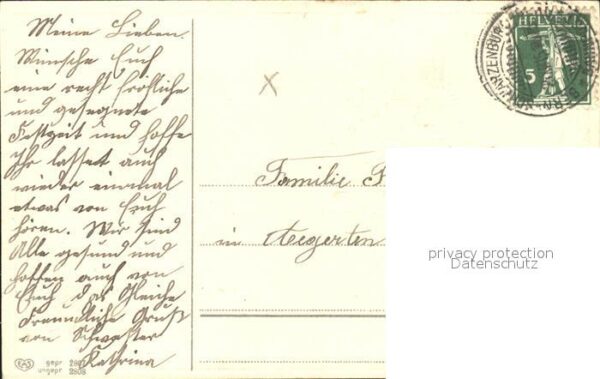 Meine Lieben.
Wünsche Euch
eine recht fröhliche
und gesegnete
Festzeit und hoffe
Ihr lasset auch
wieder einmal
etwas von Euch
hören. Wir sind
Alle gesund und
hoffen auch von
Euch das Gleiche
Freundliche Gruss
von Schwester
Kathrina
EAS
gepr
ungepr 2808
HELVETIA
5
BERN-SCHWARZENBURG
x
Familie
in Aegerten
privacy protection
Datenschutz